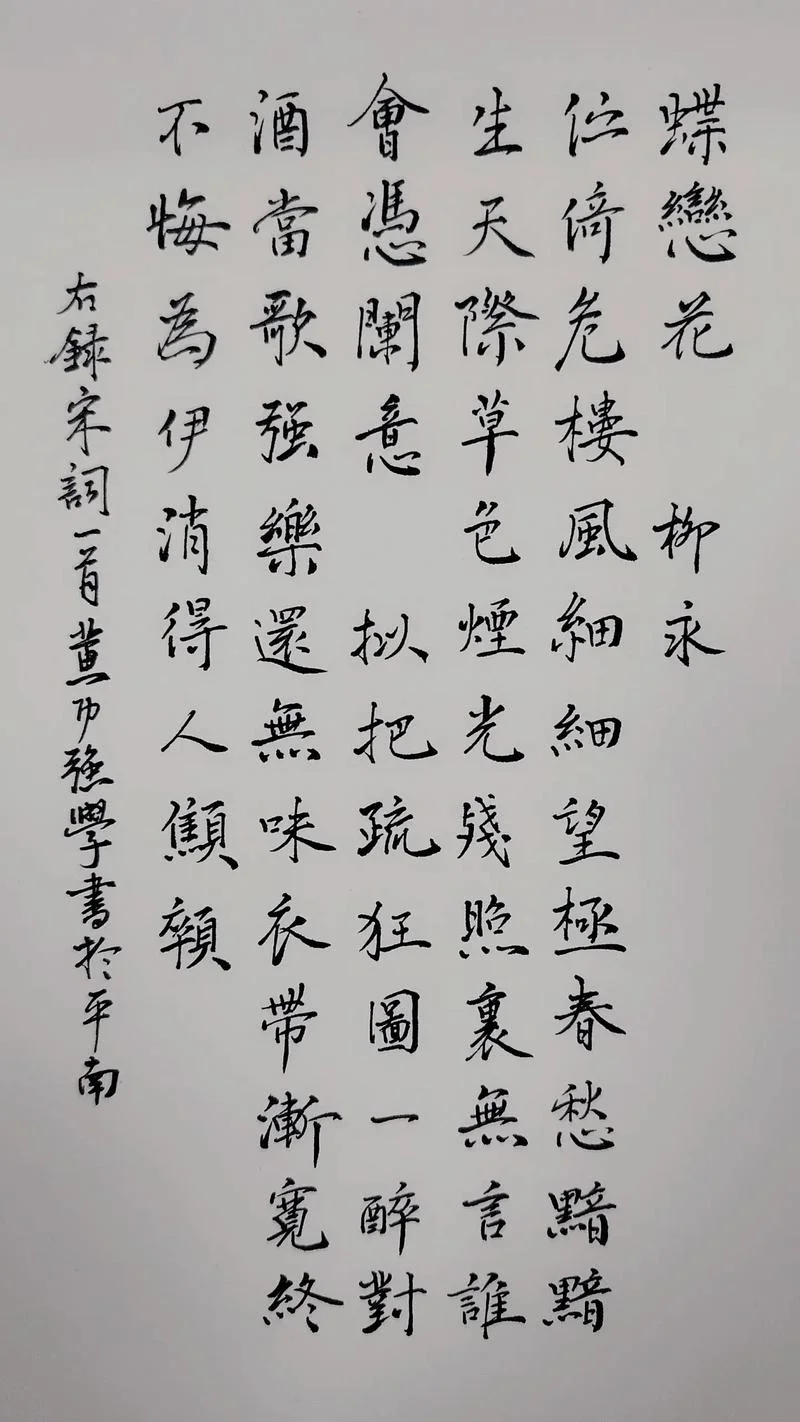 蝶戀花 柳永
伫倚危樓風細細望極春愁黯黯
生天際草色煙光殘照裏無言誰
會憑闌意 拟把疏狂圖一醉對
酒當歌强樂還無味衣帶漸寬終
不悔為伊消得人顦顇
右録宋詞一首强學書於平南